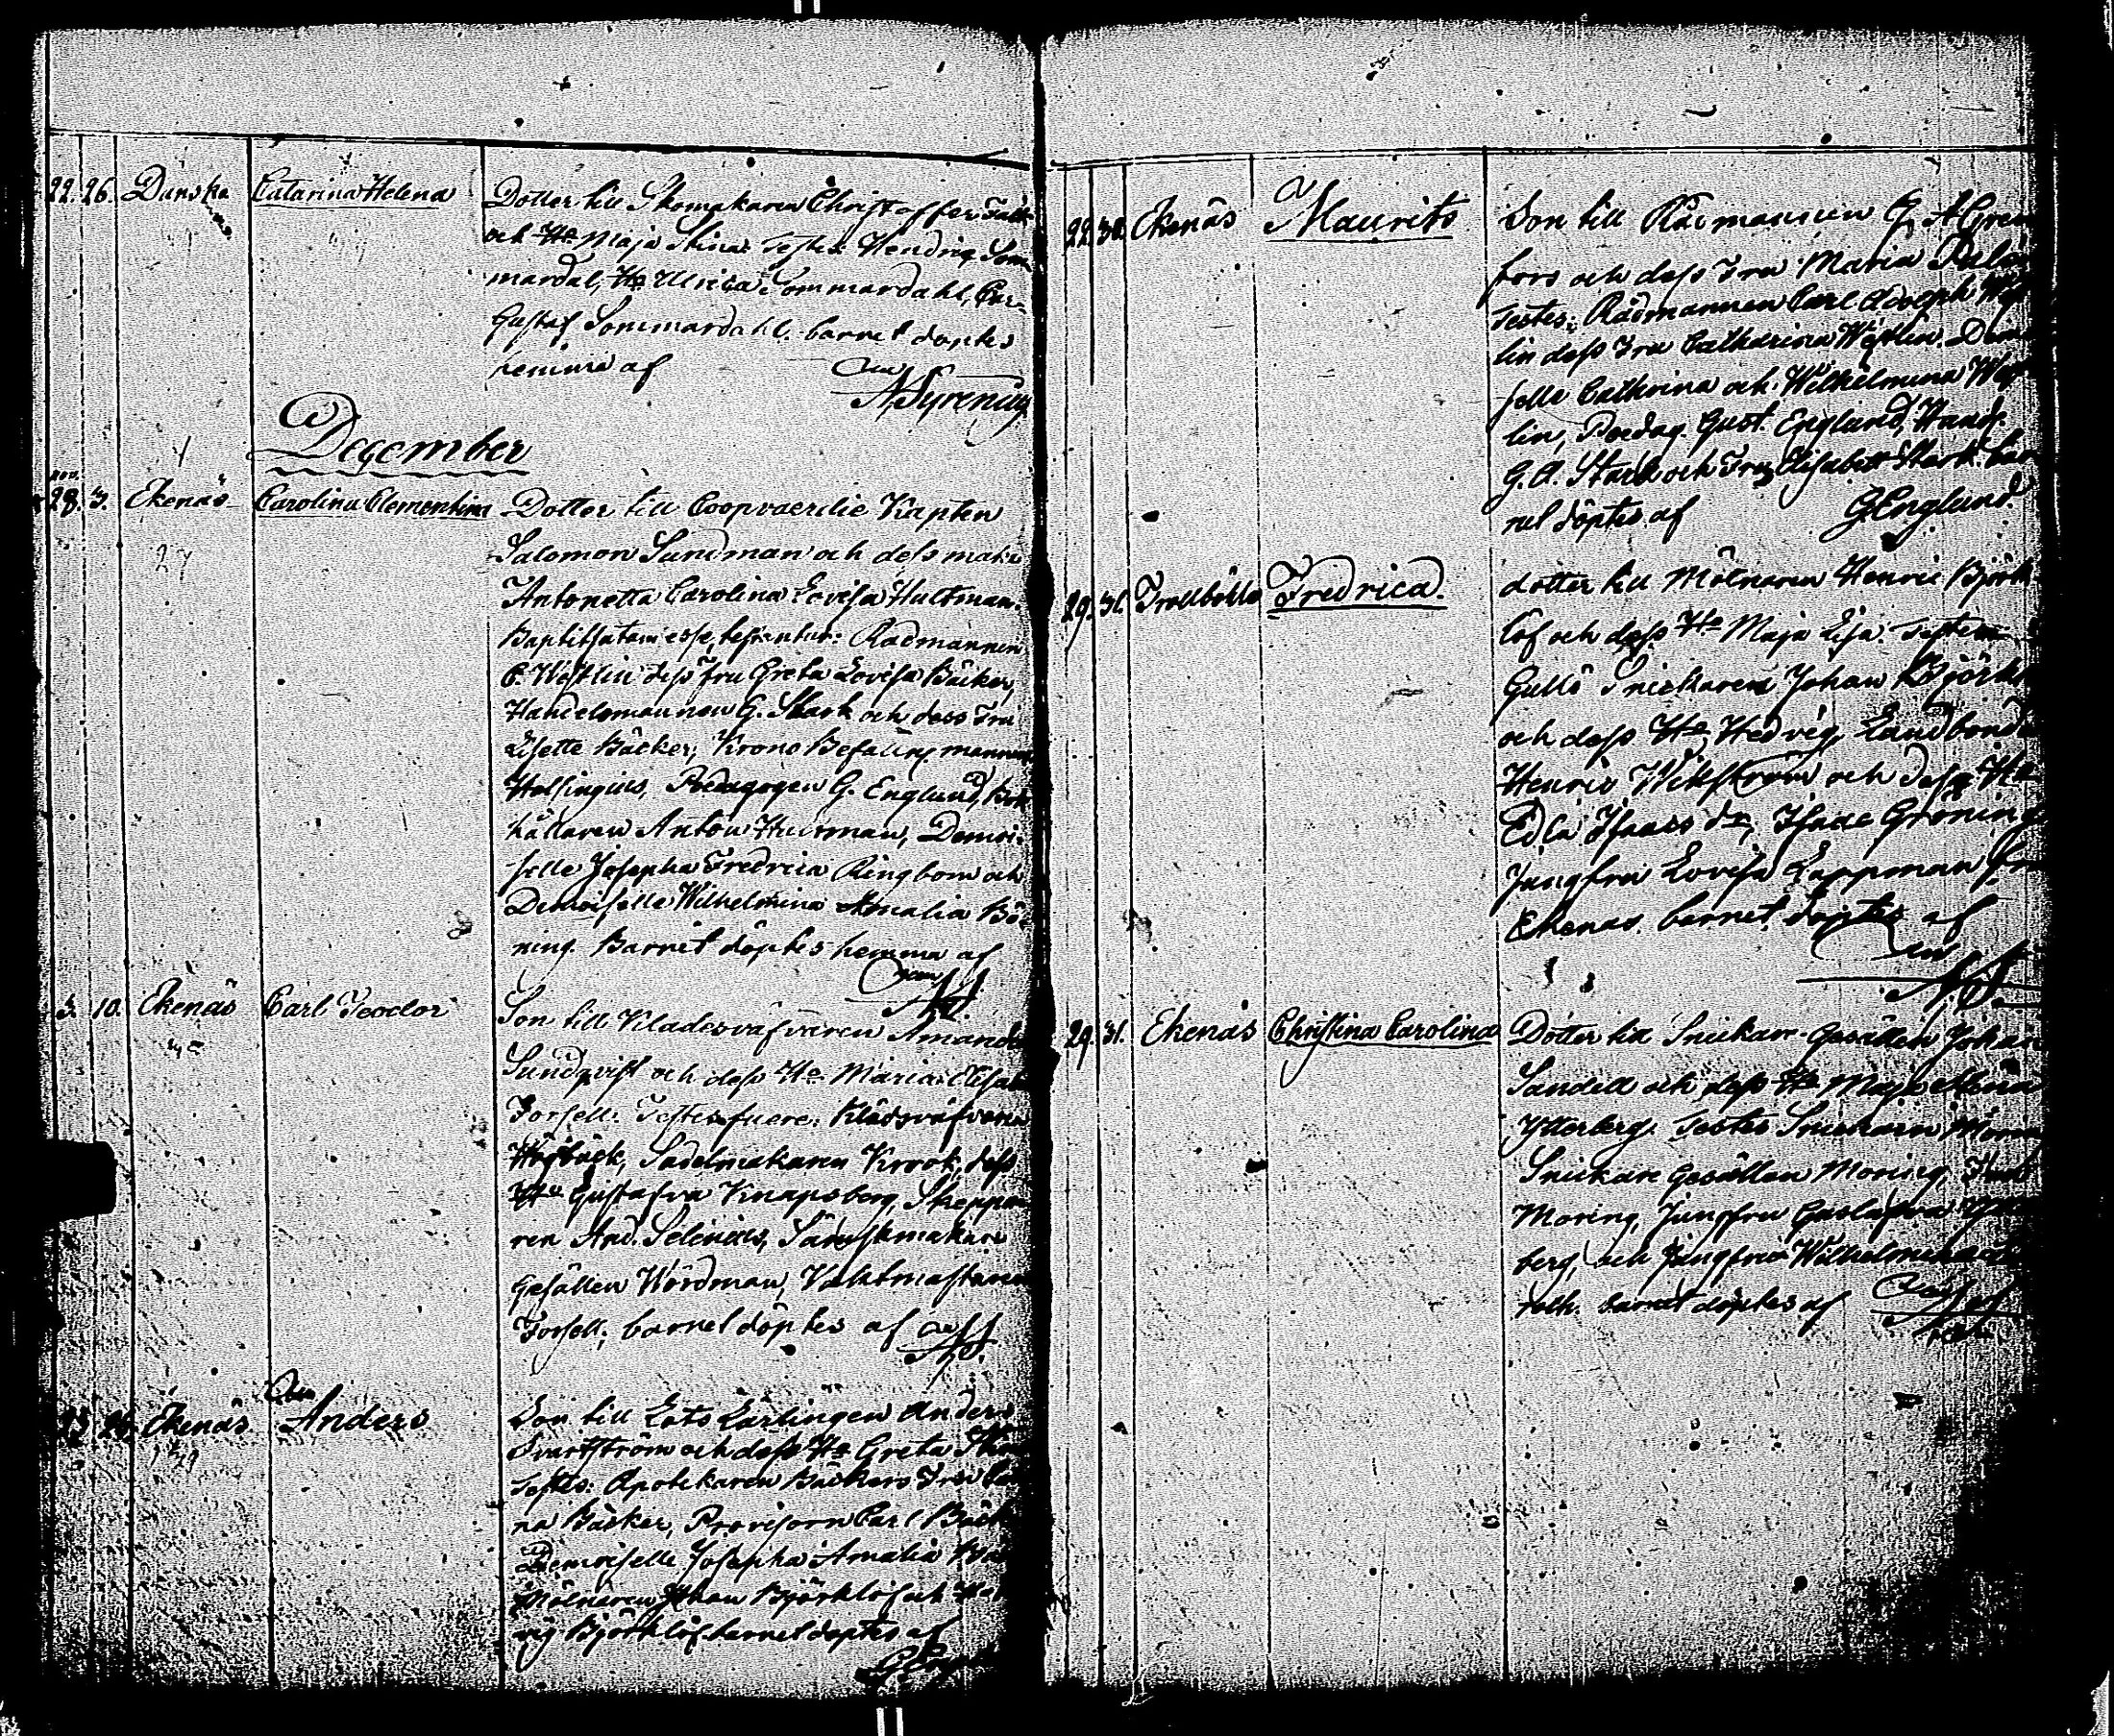 22. 26. Danska Catarina Helena Dotter till Skomakaren Christoffer
och Ho Maja Stina. Testes Hendric Som
mardal, Ho Ulrica Sommardahl, Car
Gustaf Sommardahl. barnet döptes
hemma af
N. Syrenius
December
nov.
28. 3. Ekenäs Carolina Clementina Dotter till Coopvaerdie Kapten
Salomon Sundman och dess maka
Antonetta Carolina Lovisa Hultman.
Rådmannen
C. Westlin dess fru Greta Lovisa Bäcker,
Handelsmannen G. Stark och dess Fru
Lisette Bäcker, Krono Befalnings mannen
Helsingius, Pedagogen G. Englund, Bok
hållaren Anton Hultman, Demoi-
selle Josepha Fredrica Ringbom och
Demoiselle Wilhelmina Amalia Bö-
ning. Barnet döptes hemma af
N. S.
3. 10. Ekenäs Carl Teodor Son till Klädesväfvaren Amand
Sundqvist och dess Ho Maria Elisab
Forsell. Testes fuere: Klädsväfvaren
Högbäck, Sadelmakaren Krook, dess
Ho Gustafva Knapsberg, Skeppa
ren And. Selenius, Sämskmakare
Gesällen Wördman, Vaktmästaren
Forsell; barnet döptes af N. S.
23 26 Ekenäs Anders Son till Lots Lärlingen Anders
Svartström och dess Ho Greta
Testes: Apotekaren Bäckers Fru
na Bäcker, Provisorn Carl Bäck
Demoiselle Josepha Amalia
Mölnaren Johan Björklöf och Hed
vig Björklöf. barnet döptes af
22. 30. Ekenäs Maurits Son till Rådmannen G. A. Gren
fors och dess Fru Maria
Testes: Rådmannen Carl Adolph West
lin dess Fru Catharina Westlin. Demoi
selle Cathrina och Wilhelmina West
lin, Pædag. Gust. Englund, Handl.
G. A. Stark och Fru Elisabett Stark. bar
net döptes af G. Englund.
29. 31. Trollböle Fredrica. dotter till Mölnaren Henric Björk
löf och dess Ho Maja Lisa. Testes
Gullö Snickaren Johan Björkl
och dess Ho Hedvig, Landbonde
Henric Wikström och dess Ho
Edla Isaacs dr, Isaac Gröning
Jungfru Lovisa Lappman fr
Ekenäs. barnet döptes af
N. S.
29. 31. Ekenäs Christina Carolina Dotter till Snickare Gesällen Johan
Sandell och dess Ho Maja Stina
Ytterberg. Testes Snickaren
Snickare Gesällen Moring,
Moring, Jungfru Gustafva
berg, och Jungfru Wilhelmina
barnet döptes af